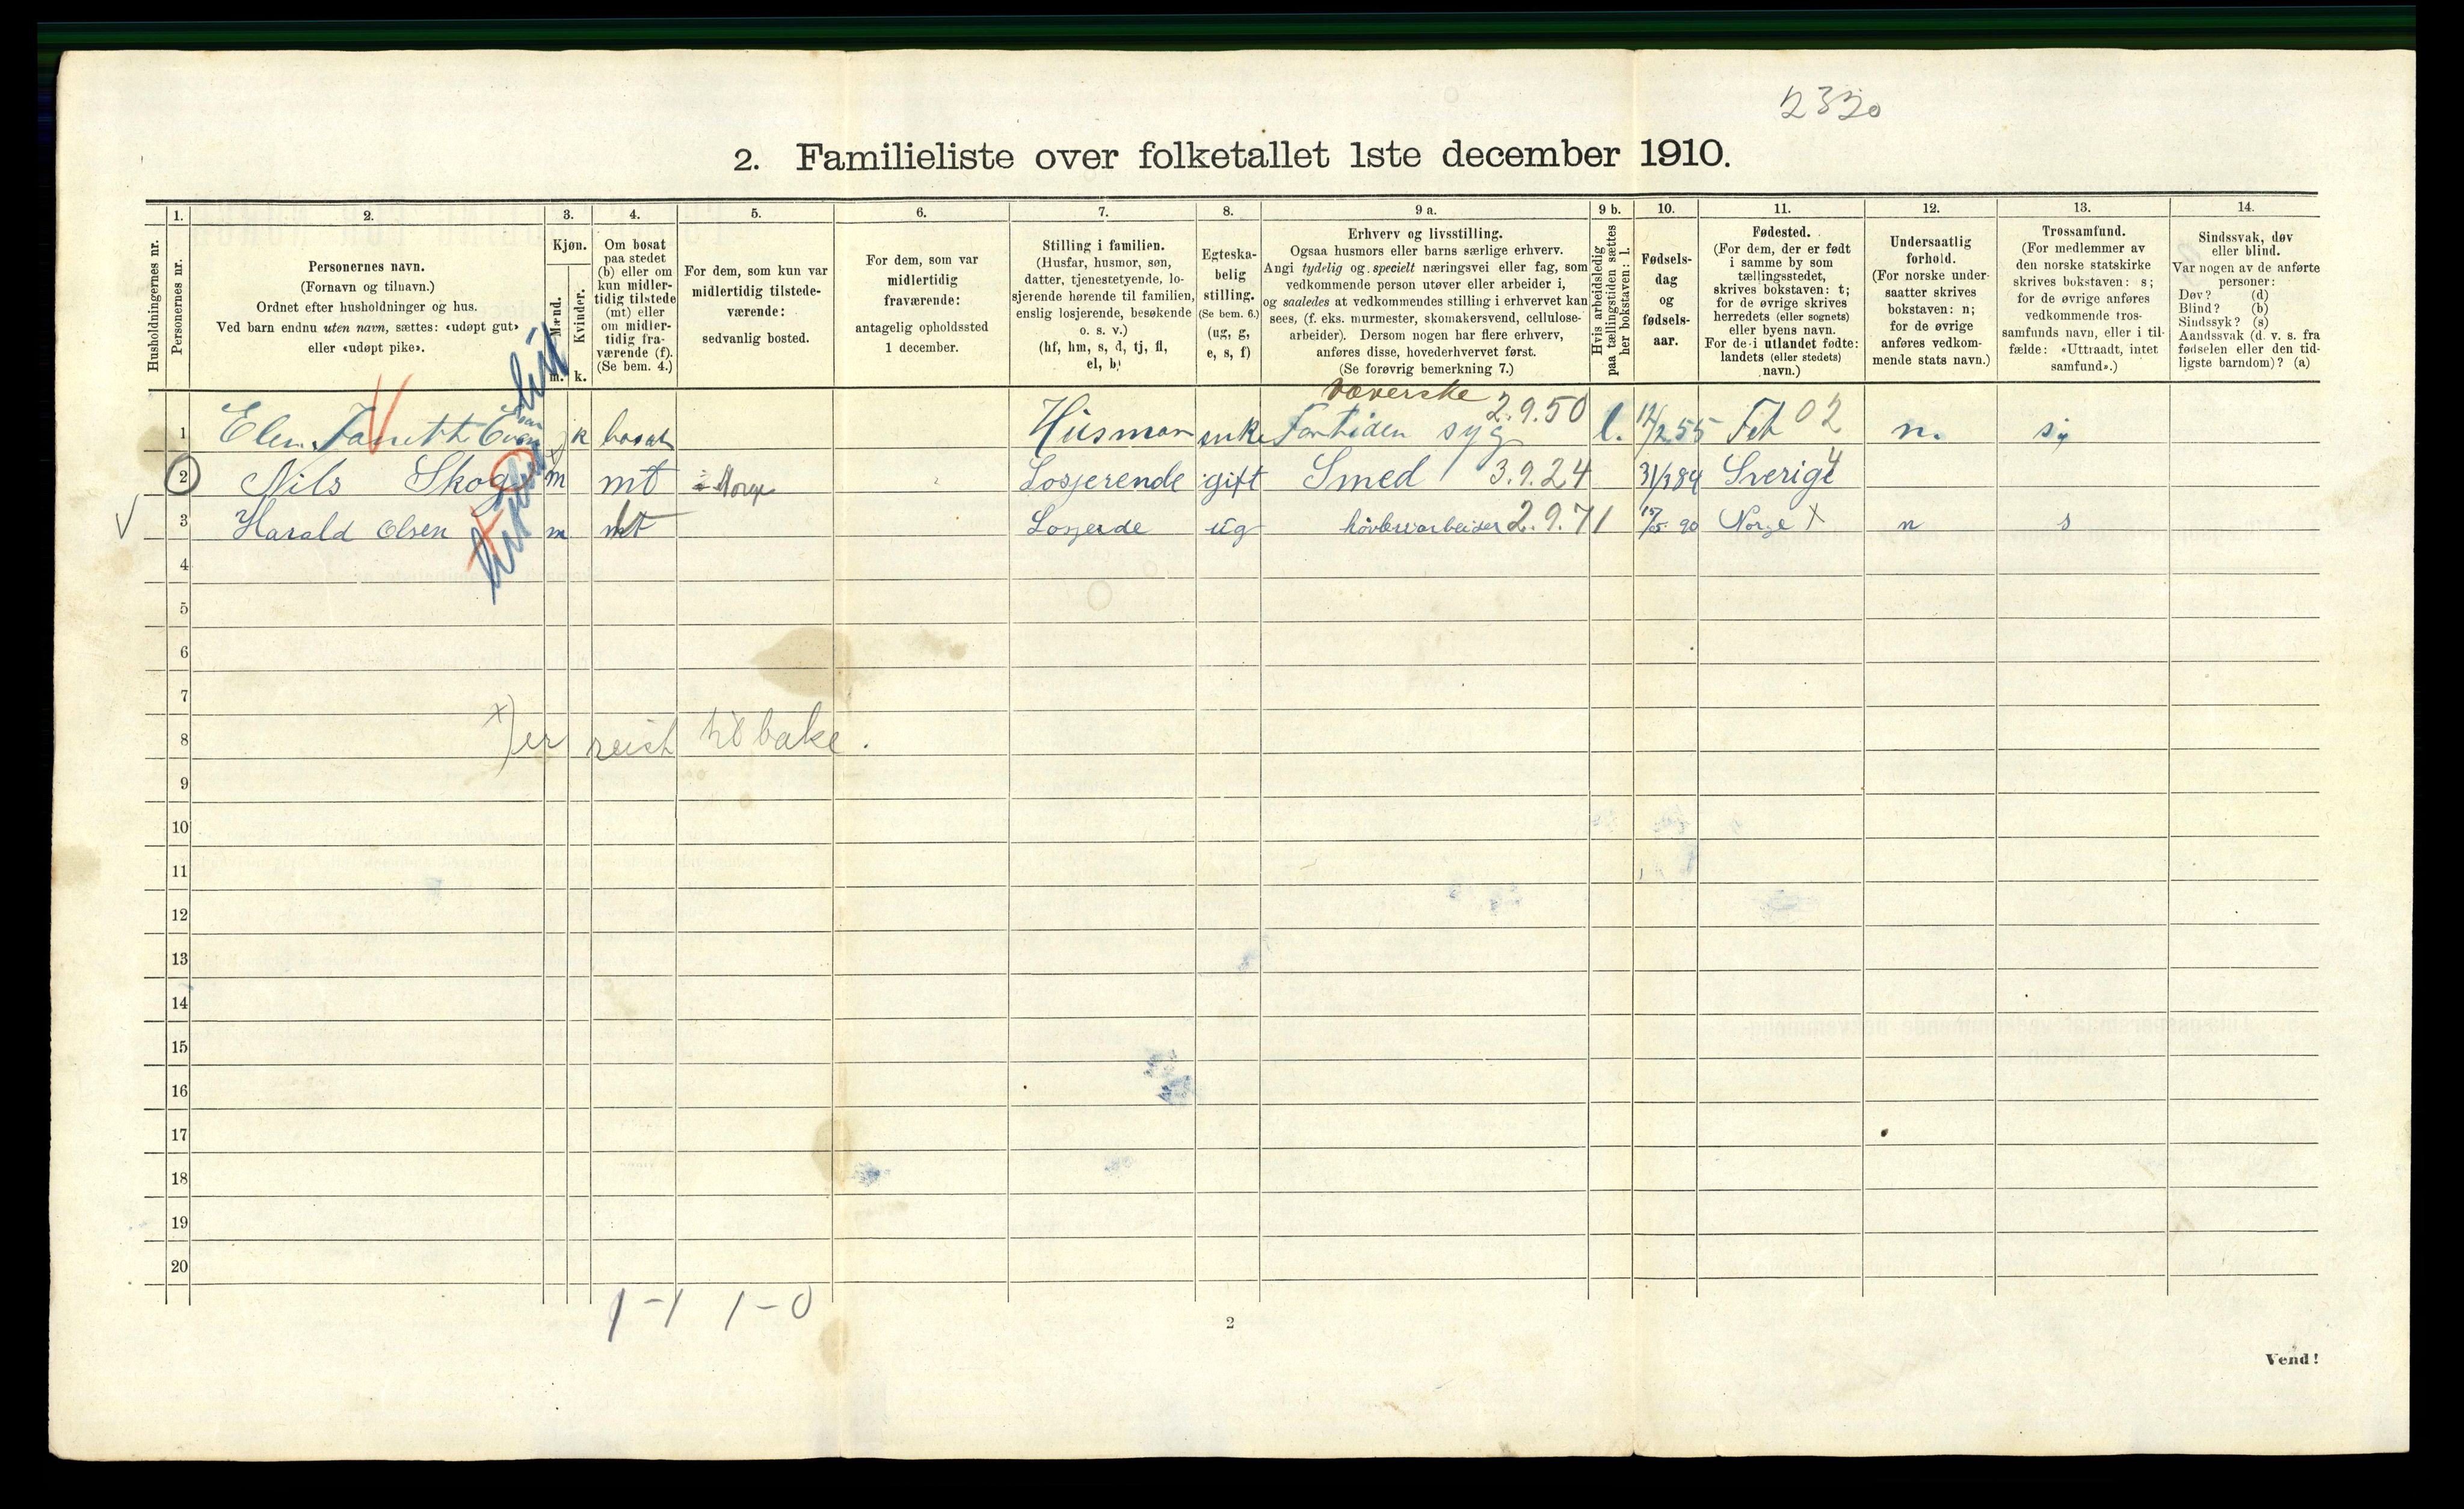 2330
2. Familieliste over folketallet 1ste december 1910.
Husholdningernes nr.
1.
Personernes nr.
2.
Personernes navn.
(Fornavn og tilnavn.)
Ordnet efter husholdninger og hus.
Ved barn endnu uten navn, sættes: «udøpt gut»
eller «udøpt pike».
3.
Kjøn.
Mænd.
Kvinder.
m.
k.
4.
Om bosat
paa stedet
(b) eller om
kun midler-
tidig tilstede
(mt) eller
om midler-
tidig fra-
værende (f).
(Se bem. 4.)
5.
For dem, som kun var
midlertidig tilstede-
værende:
sedvanlig bosted.
6.
For dem, som var
midlertidig
fraværende:
antagelig opholdssted
1 december.
7.
Stilling i familien.
(Husfar, husmor, søn,
datter, tjenestetyende, lo-
sjerende hørende til familien,
enslig losjerende, besøkende
o. s. v.)
(hf, hm, s, d, tj, fl,
el, b)
8.
Egteska-
belig
stilling.
(Se bem. 6.)
(ug, g,
e, s, f)
9 a.
Erhverv og livsstilling.
Ogsaa husmors eller barns særlige erhverv.
Angi tydelig og specielt næringsvei eller fag, som
vedkommende person utøver eller arbeider i,
og saaledes at vedkommendes stilling i erhvervet kan
sees, (f. eks. murmester, skomakersvend, cellulose-
arbeider). Dersom nogen har flere erhverv,
anføres disse, hovederhvervet først.
(Se forøvrig bemerkning 7.)
9 b.
Hvis arbeidsledig
paa tællingstiden sættes
her bokstaven: l.
10.
Fødsels-
dag
og
fødsels-
aar.
11.
Fødested.
(For dem, der er født
i samme by som
tællingsstedet,
skrives bokstaven: t;
for de øvrige skrives
herredets (eller sognets)
eller byens navn.
For de i utlandet fødte:
landets (eller stedets)
navn.)
12.
Undersaatlig
forhold.
(For norske under-
saatter skrives
bokstaven: n;
for de øvrige
anføres vedkom-
mende stats navn.)
13.
Trossamfund.
(For medlemmer av
den norske statskirke
skrives bokstaven: s;
for de øvrige anføres
vedkommende tros-
samfunds navn, eller i til-
fælde: «Uttraadt, intet
samfund».)
14.
Sindssvak, døv
eller blind.
Var nogen av de anførte
personer:
Døv? (d)
Blind? (b)
Sindssyk? (s)
Aandssvak (d. v. s. fra
fødselen eller den tid-
ligste barndom)? (a)
Væverske
1 k bosat Husmor enke Fortiden syg 2.9.50 l. 12/2 55 Fet 02 n. s
2 Nils Skog m mt Norge Losjerende gift Smed 3.9.24 Sverige 4
3 Harald Olsen m Losjerde ug høvleriarbeider 2.9.71 90 Norge X n s
4
5
6
7
8 x) er reist tilbake.
9
10
11
12
13
14
15
16
17
18
19
20
1-1 1-0
2
Vend!